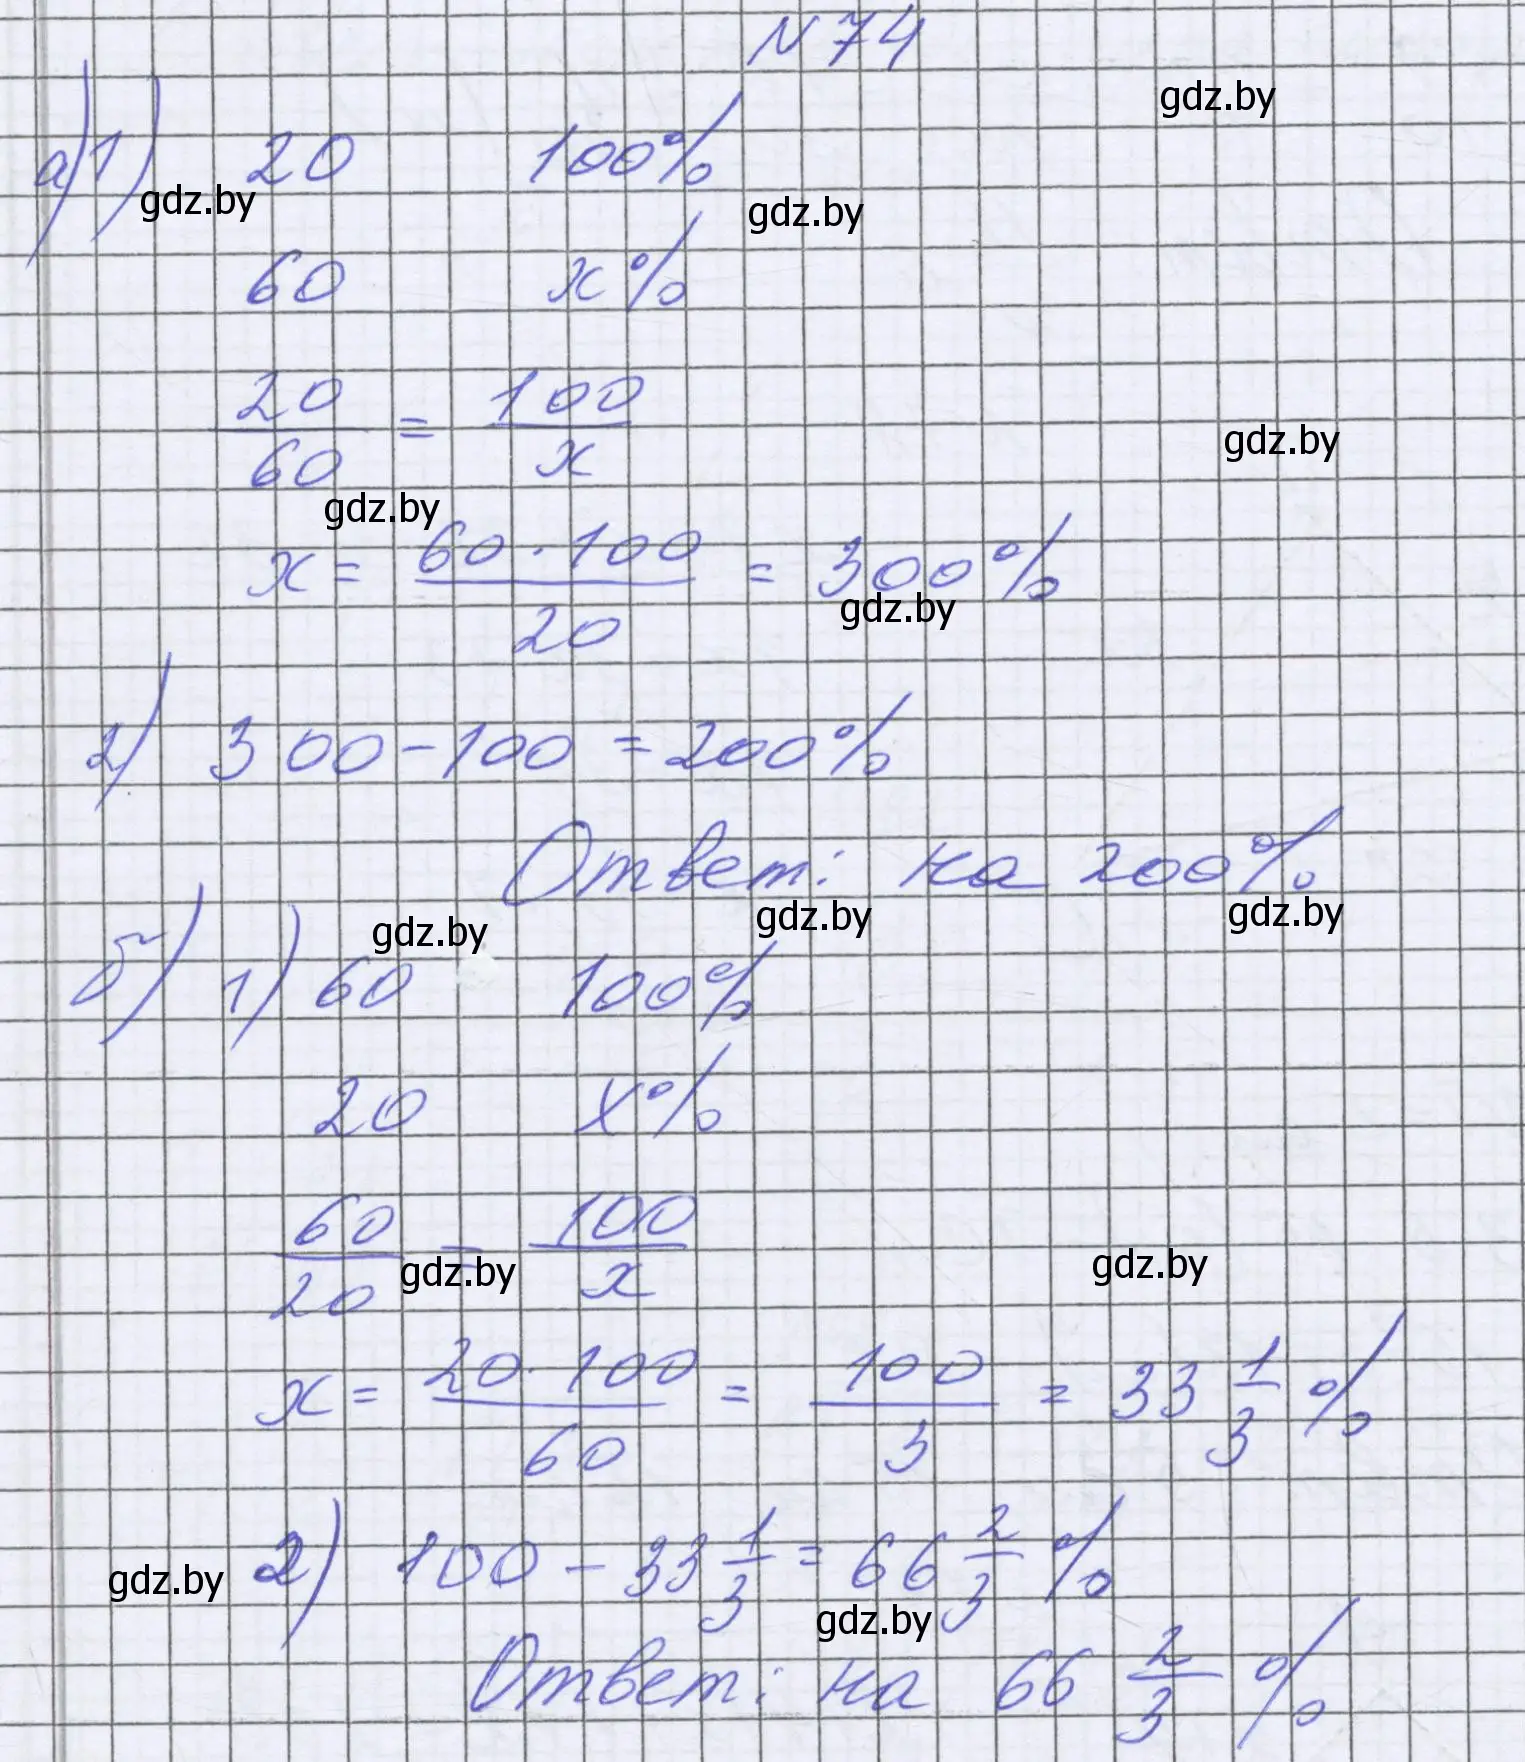 N 74
gdz.by
а) 1) 20 100%
gdz.by gdz.by
60 x%
20/60 = 100/x
gdz.by
gdz.by
x = 60 · 100/20 = 300%
gdz.by
2) 300 - 100 = 200%
Ответ: на 200%
gdz.by gdz.by gdz.by
б) 1) 60 100%
20 x%
60/20 = 100/x
gdz.by gdz.by
x = 20 · 100/60 = 100/3 = 33 1/3 %
2) 100 - 33 1/3 = 66 2/3 %
gdz.by
gdz.by
Ответ: на 66 2/3 %